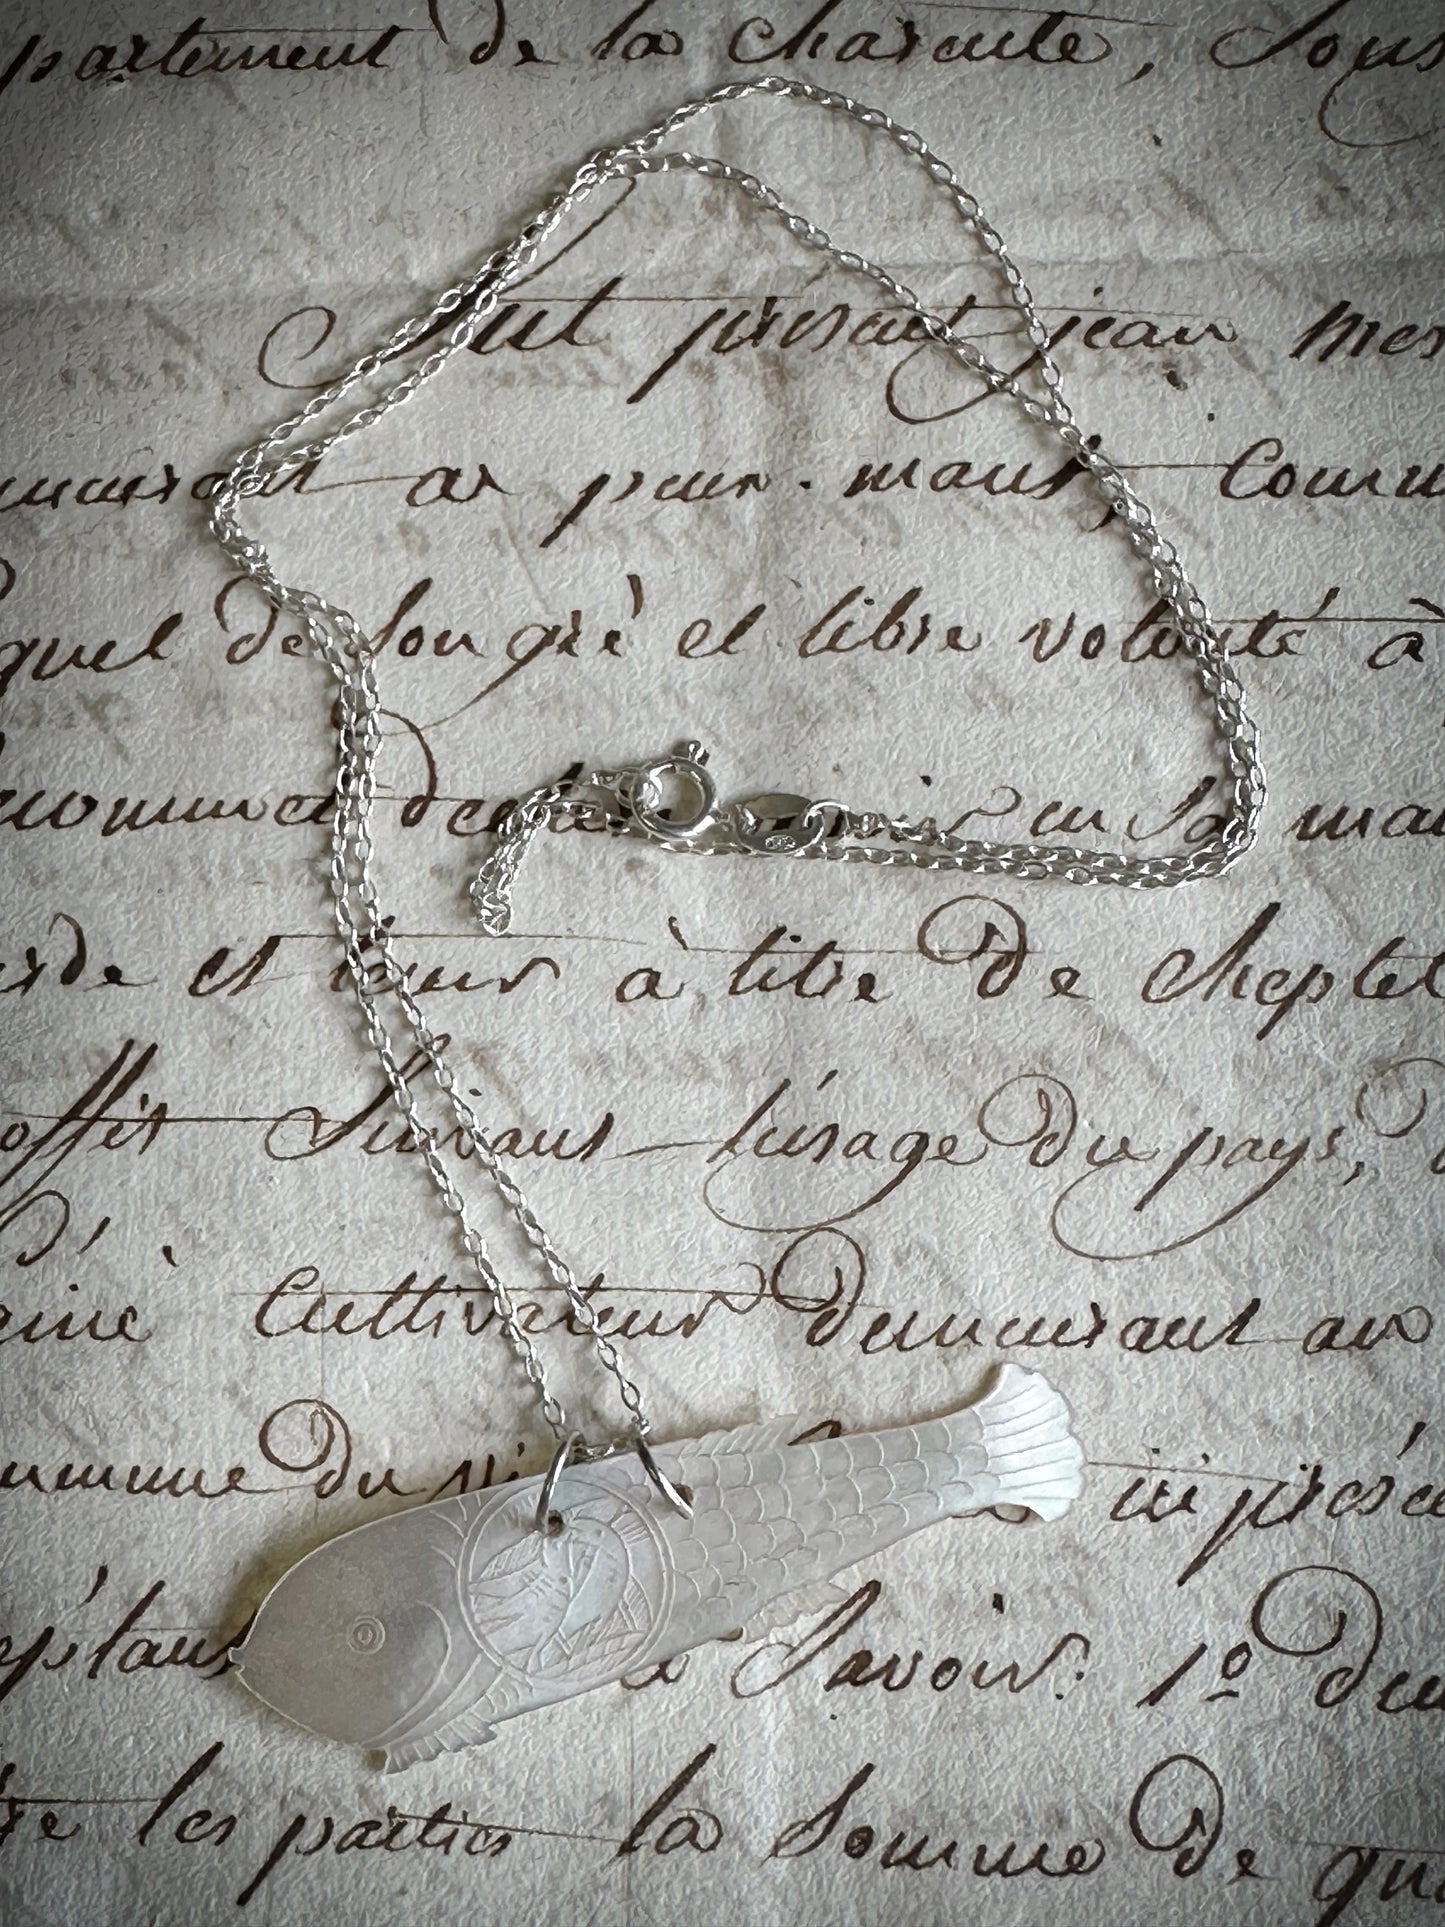 partement de la charente, sous
fut présent jean mes
demeurant au pour. mans comm
quel de son gré et libre volonté à
reconnu et de en sa mai
garde et leur à titre de cheptel
offit suivant l'usage du pays, d
ainé cultivateur demeurant au
commune du ici prése
ceptant Savoir: 1º du
tre les parties la somme de qu
925